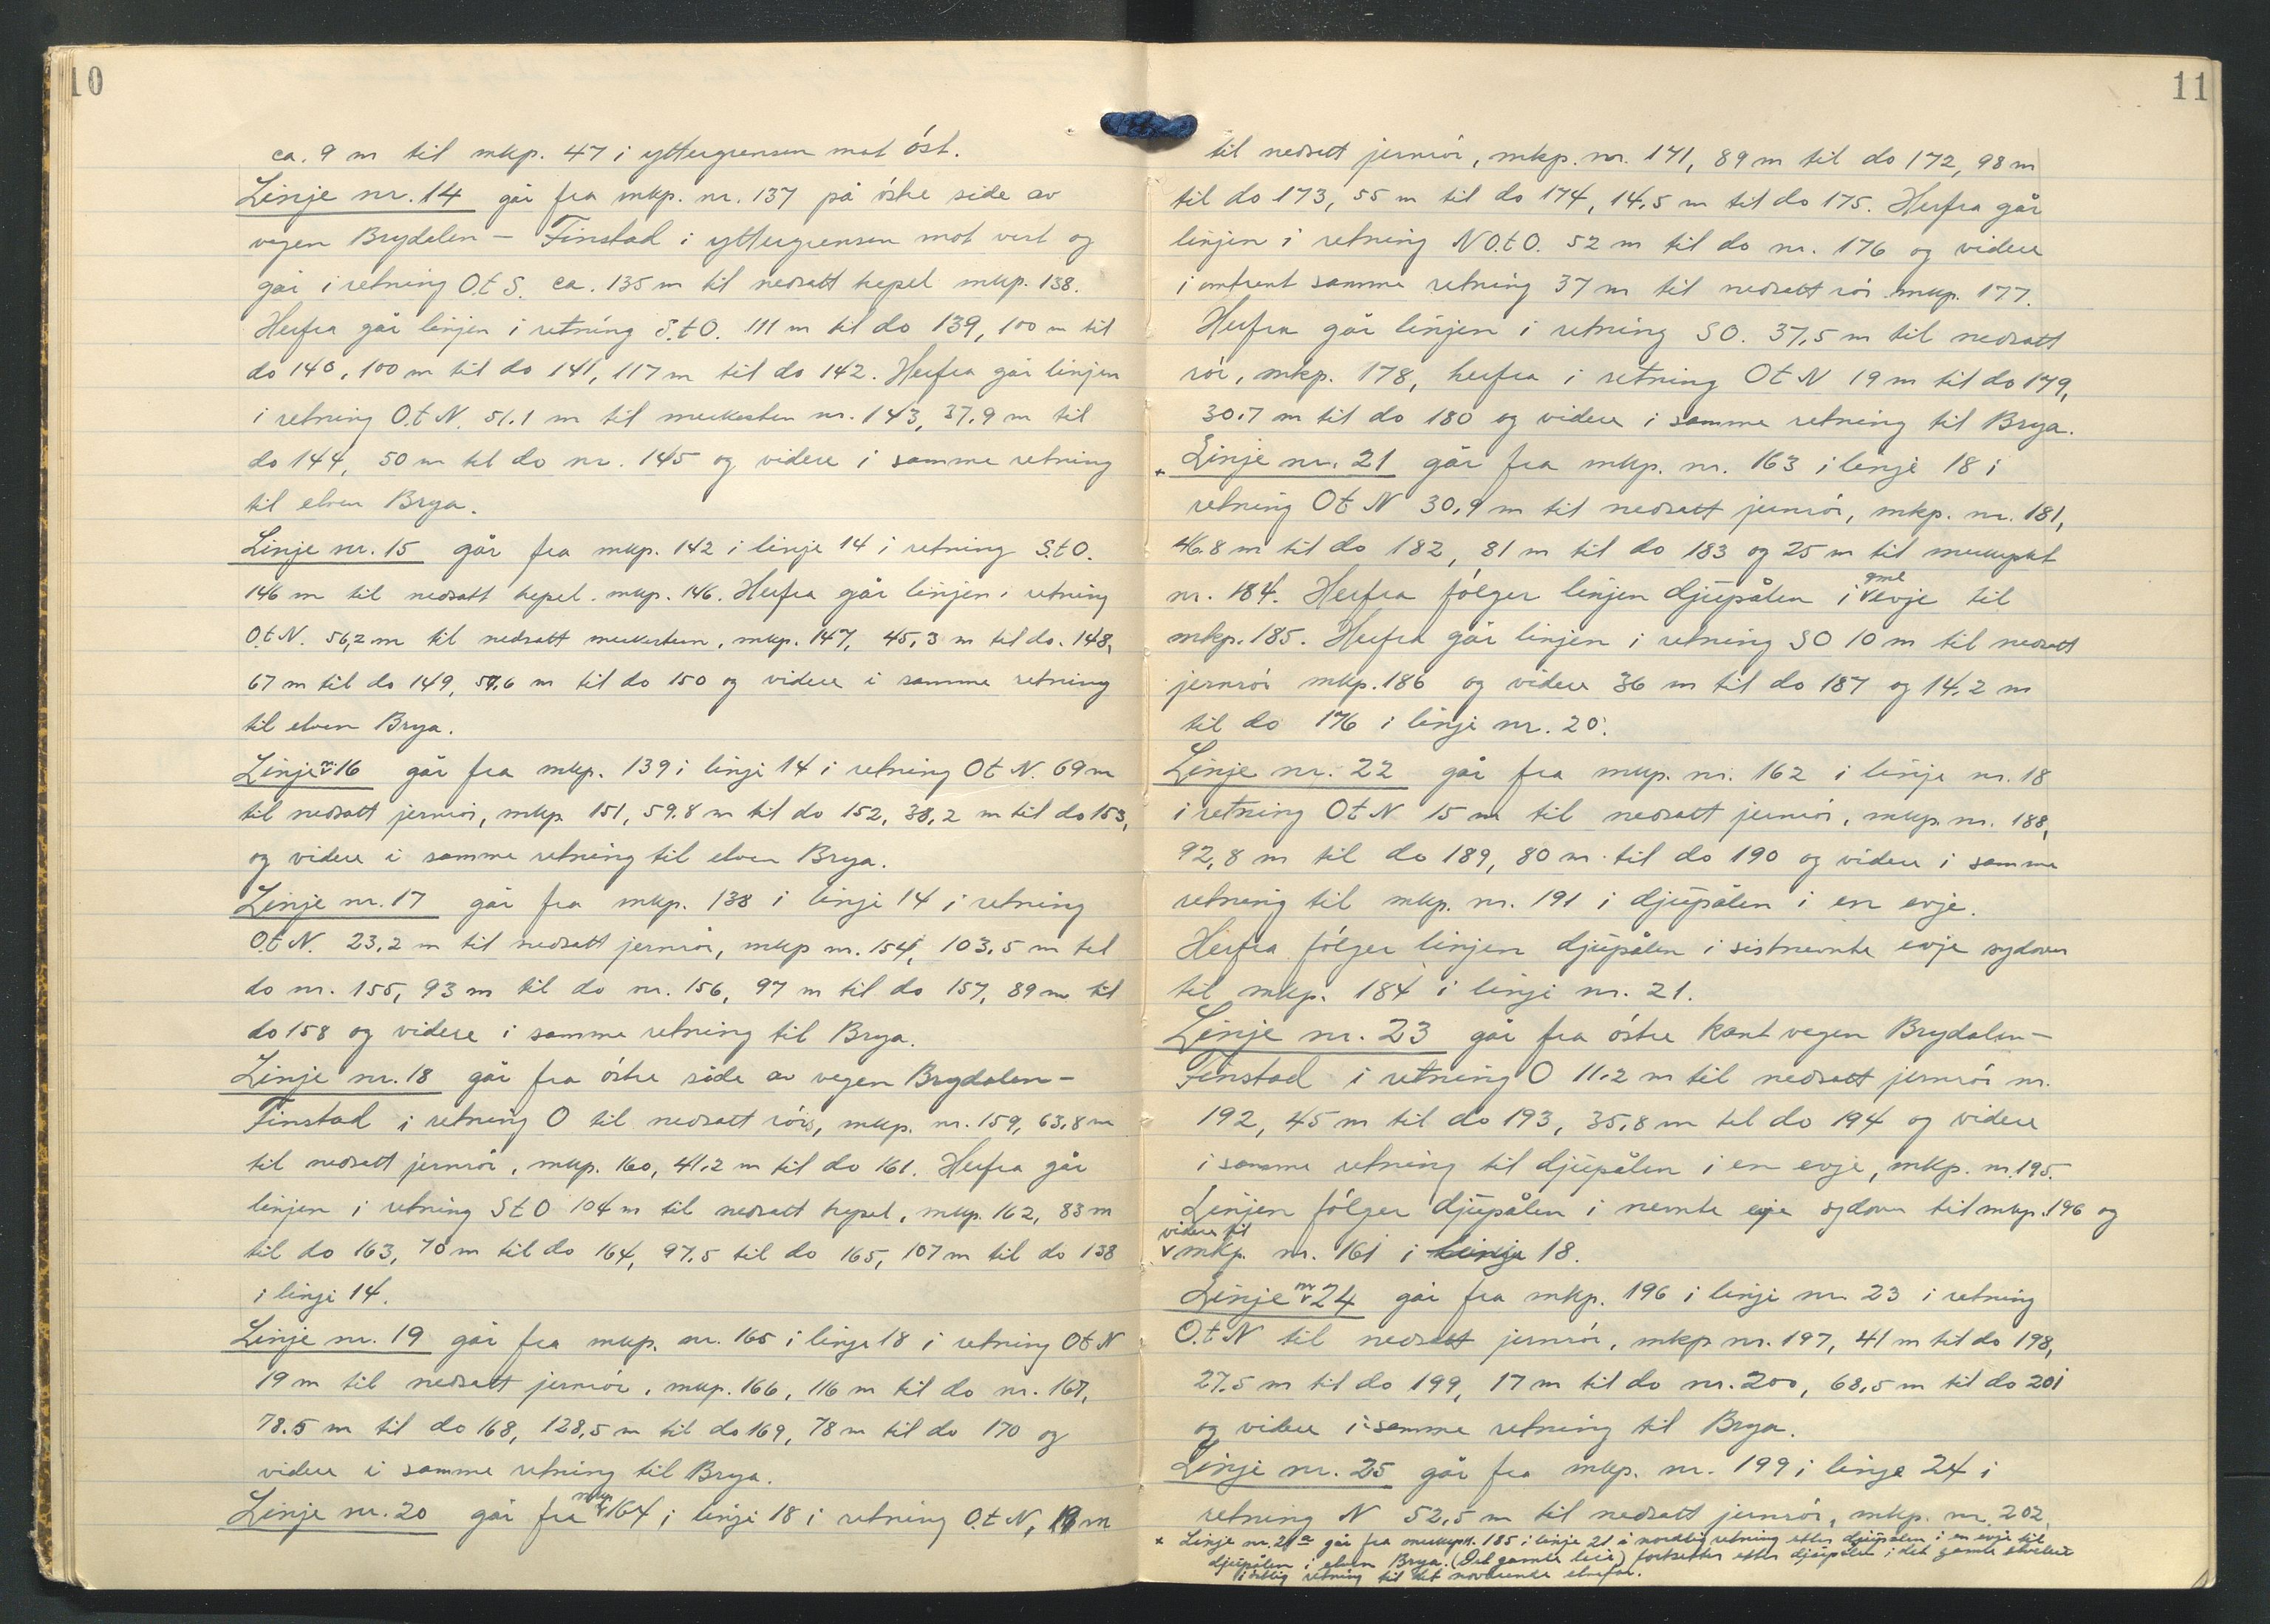 10
ca. 9 m til mkp. 47 i yttergrensen mot óst.
Linje nr. 14 går fra mkp. nr. 137 på óstre side av
vegen Brydalen – Finstad i yttergrensen mot vest og
går i retning O.t S. ca. 135 m til nedsatt hepel mkp. 138.
Herfra går linjen i retning S.t O. 111 m til do 139, 100 m til
do 140, 100 m til do 141, 117 m til do 142. Herfra går linjen
i retning O.t N. 51.1 m til merkesten nr. 143, 37.9 m til
do 144, 50 m til do nr. 145 og videre i samme retning
til elven Brya.
Linje nr. 15 går fra mkp. 142 i linje 14 i retning S.t O.
146 m til nedsatt hepel mkp. 146. Herfra går linjen i retning
O.t N. 56,2 m til nedsatt merkesten, mkp. 147, 45,3 m til do. 148,
67 m til do 149, 57,6 m til do 150 og videre i samme retning
til elven Brya.
Linje nr 16 går fra mkp. 139 i linje 14 i retning O t N. 69 m
til nedsatt jernrór, mkp. 151, 59.8 m til do 152, 38,2 m til do 153,
og videre i samme retning til elven Brya.
Linje nr. 17 går fra mkp. 138 i linje 14 i retning
O.t N. 23,2 m til nedsatt jernrór, mkp nr. 154, 103,5 m til
do nr. 155, 93 m til do nr. 156, 97 m til do 157, 89 m til
do 158 og videre i samme retning til Brya.
Linje nr. 18 går fra óstre side av vegen Brydalen –
Finstad i retning O til nedsatt rór, mkp. nr. 159, 63,8 m
til nedsatt jernrór, mkp. 160, 41,2 m til do 161. Herfra går
linjen i retning S t O 104 m til nedsatt hepel, mkp. 162, 83 m
til do 163, 70 m til do 164, 97,5 til do 165, 107 m til do 138
i linje 14.
Linje nr. 19 går fra mkp. nr. 165 i linje 18 i retning O t N
19 m til nedsatt jernrór, mkp. 166, 116 m til do nr. 167,
78.5 m til do 168, 128,5 m til do 169, 78 m til do 170 og
videre i samme retning til Brya.
Linje nr. 20 går fra mkp 164 i linje 18 i retning O.t N, 19 m
11
til nedsatt jernrór, mkp. nr. 171, 89 m til do 172, 98 m
til do 173, 55 m til do 174, 14,5 m til do 175. Herfra går
linjen i retning N O.t O. 52 m til do nr. 176 og videre
i omtrent samme retning 37 m til nedsatt rór mkp. 177.
Herfra går linjen i retning SO. 37,5 m til nedsatt
rór, mkp. 178, herfra i retning O t N 19 m til do 179,
30.7 m til do 180 og videre i samme retning til Brya.
× Linje nr. 21 går fra mkp. nr. 163 i linje 18 i
retning O t N 30,9 m til nedsatt jernrór, mkp. nr. 181,
46.8 m til do 182, 81 m til do 183 og 25 m til merkepkt
nr. 184. Herfra fólger linjen djupålen i gml evje til
mkp. 185. Herfra går linjen i retning SO 10 m til nedsatt
jernrór mkp. 186 og videre 36 m til do 187 og 14.2 m
til do 176 i linje nr. 20.
Linje nr. 22 går fra mkp. nr. 162 i linje nr. 18
i retning O t N 15 m til nedsatt jernrór, mkp. nr. 188,
92,8 m til do 189, 80 m til do 190 og videre i samme
retning til mkp. nr. 191 i djupålen i en evje.
Herfra fólger linjen djupålen i sistnevnte evje sydover
til mkp. 184 i linje nr. 21.
Linje nr. 23 går fra óstre kant vegen Brydalen –
Finstad i retning O 11.2 m til nedsatt jernrór nr.
192, 45 m til do 193, 35,8 m til do 194 og videre
i samme retning til djupålen i en evje, mkp. nr. 195.
Linjen fólger djupålen i nevnte evje sydover til mkp. 196 og
videre til mkp. nr. 161 i linje 18.
Linje nr 24 går fra mkp. 196 i linje nr. 23 i retning
O.t N til nedsatt jernrór, mkp nr. 197, 41 m til do 198,
27.5 m til do 199, 17 m til do nr. 200, 68,5 m til do 201
og videre i samme retning til Brya.
Linje nr. 25 går fra mkp. nr. 199 i linje 24 i
retning N 52,5 m til nedsatt jernrór, mkp. nr. 202,
× Linje nr. 21 a går fra merkepkt. 185 i linje 21 i nordlig retning etter djupålen i en evje til
djupålen i elven Brya. (Det gamle leie) fortsetter etter djupålen i det gamle elveleie
i óstlig retning til det nåværende elvefar.